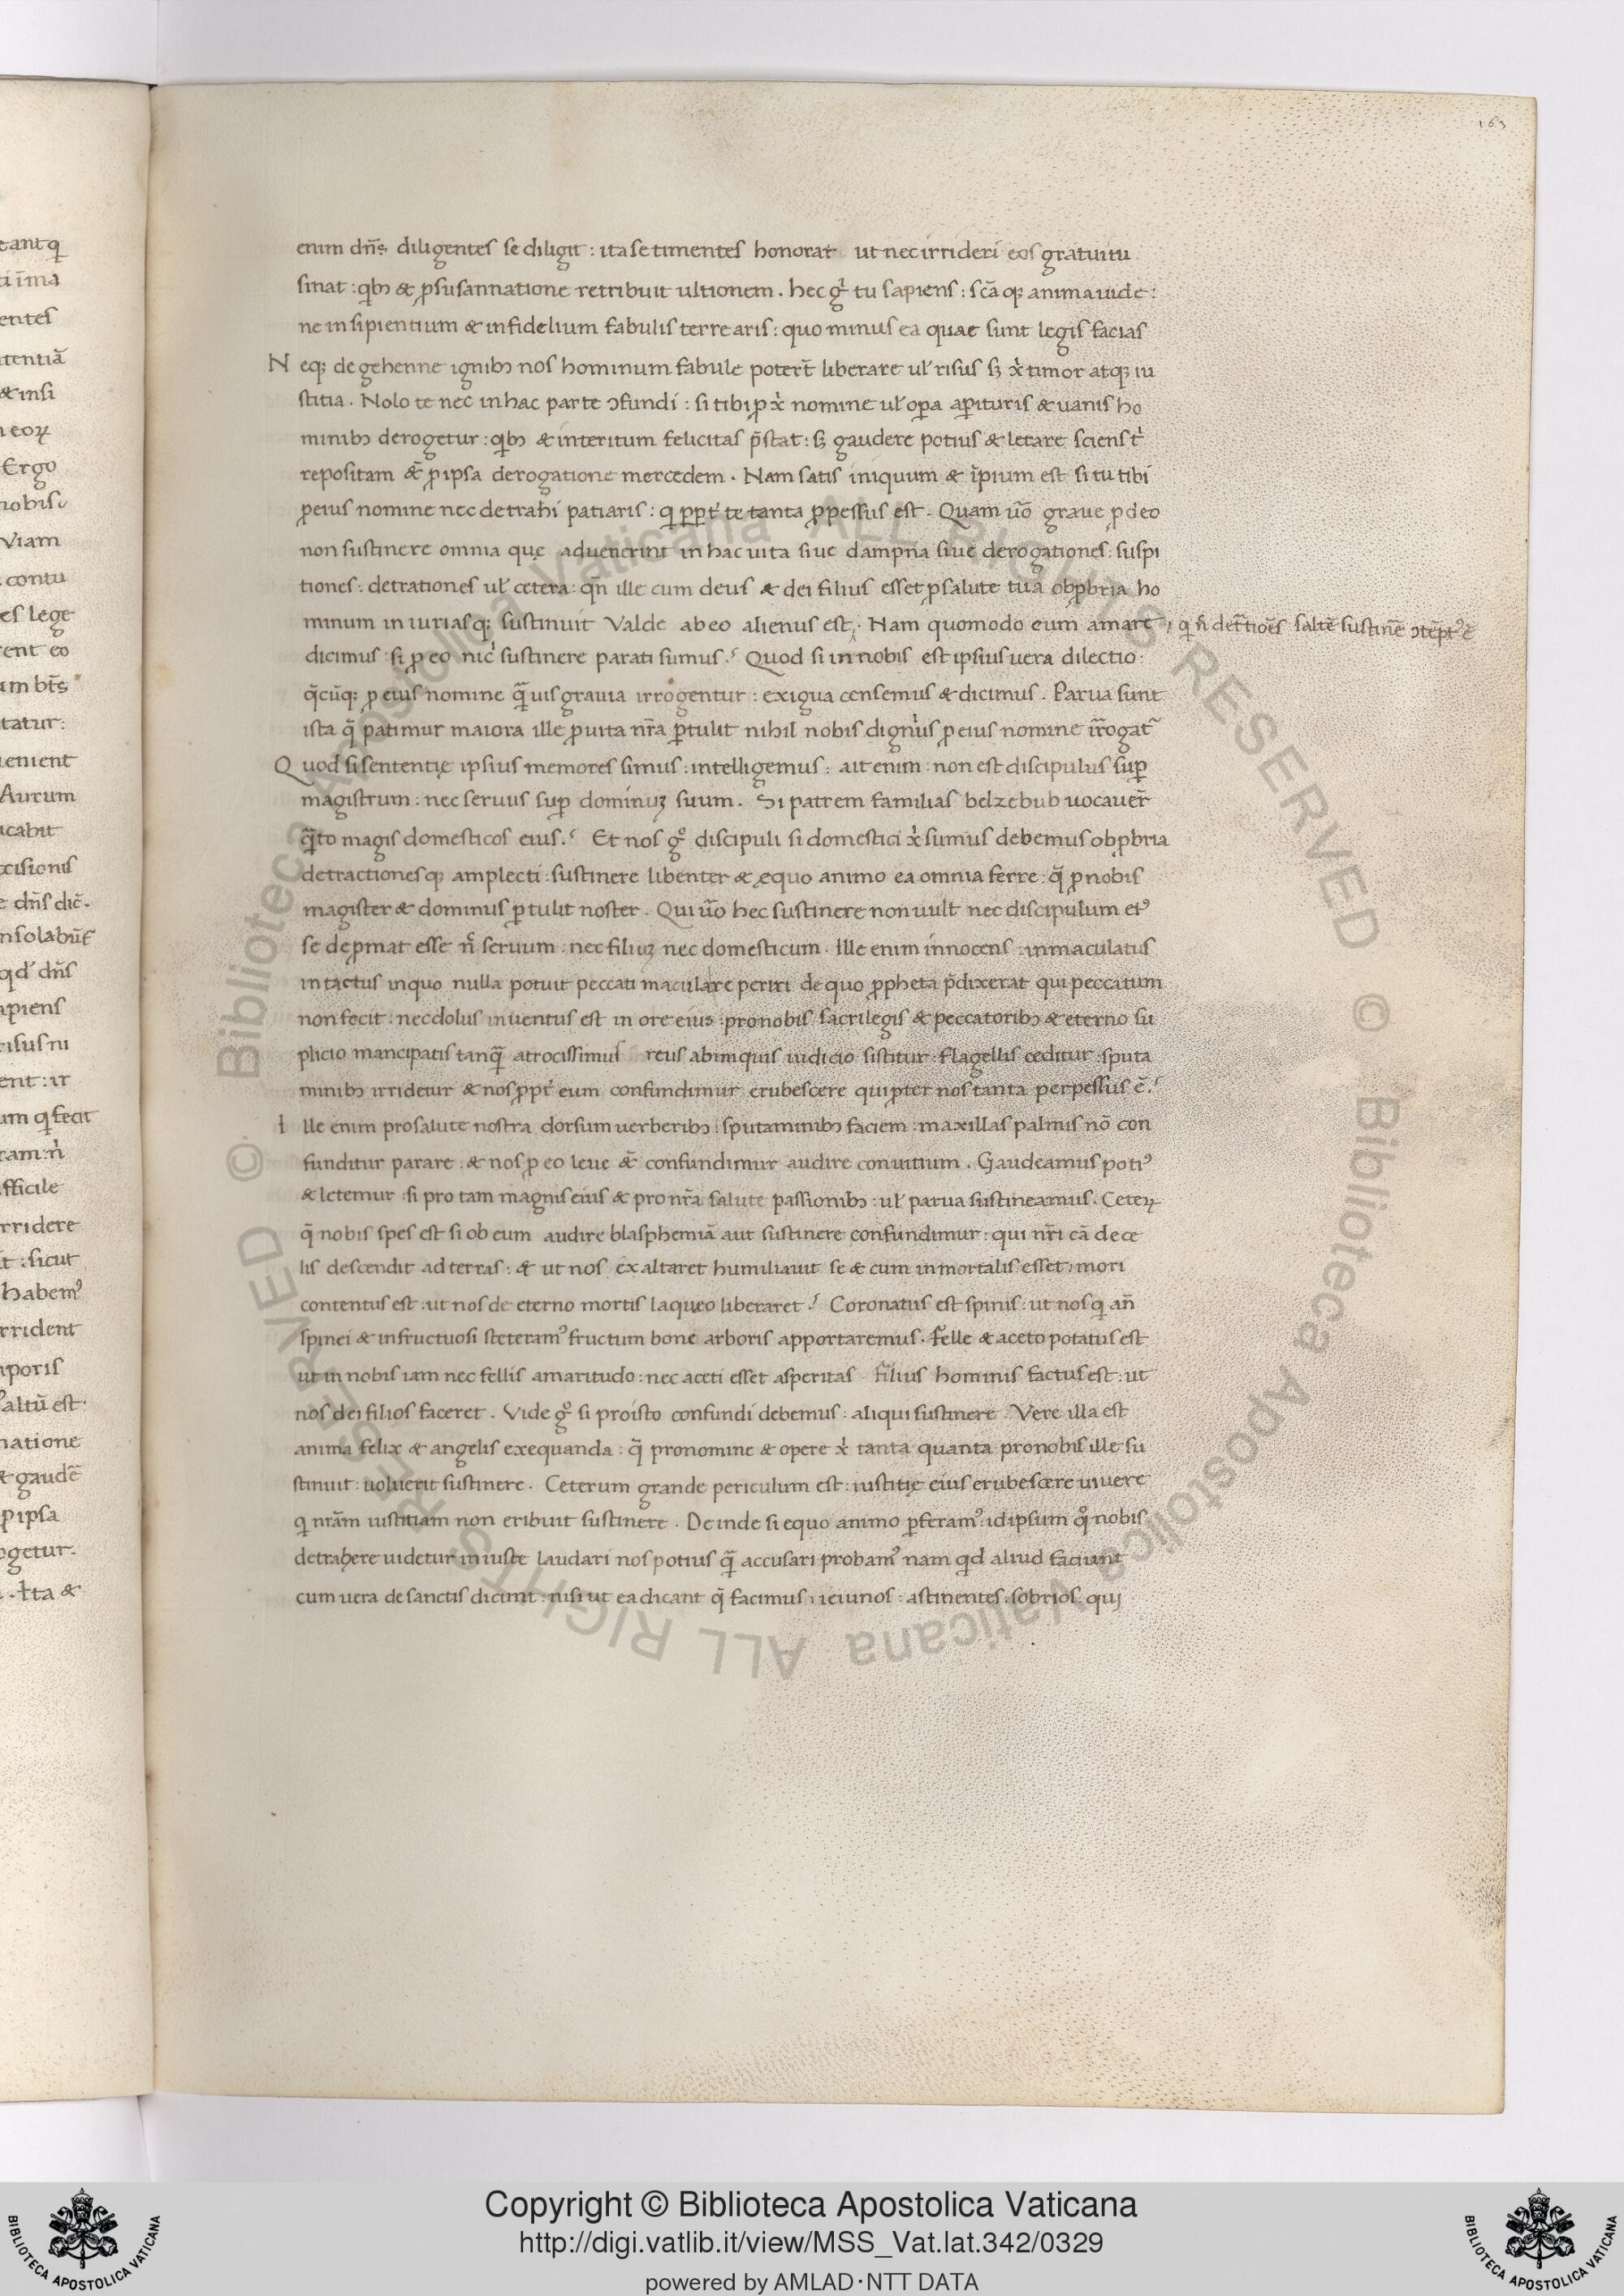 163
enim dñs diligentes se diligit : ita se timentes honorat ut nec irrideri eos gratuitu
sinat : qbꝫ & ꝑ susannatione retribuit ultionem . hec g̊ tu sapiens : sc̄a qꝫ anima uide :
ne insipientium & infidelium fabulis terrearis : quo minus ea quae sunt legis facias
Neqꝫ de gehenne ignibꝫ nos hominum fabule potert̄ liberare ul̓ risus sꝫ xp̄i timor atqꝫ iu
stitia . Nolo te nec in hac parte ɔfundi : si tibi ꝓ xp̄i nomine ul̓ oꝑa aꝑituris & uanis ho
minibꝫ derogetur : qbꝫ & interitum felicitas p̄stat : sꝫ gaudere potius & letare sciens t̓
repositam &̄ ꝓ ipsa derogatione mercedem . Nam satis iniquum & īpium est si tu tibi
ꝓ eius nomine nec detrahi patiaris : q ꝓpt̓ te tanta ꝑpessus est . Quam u̅o graue ꝓ deo
non sustinere omnia quę aduenerint in hac uita siue dampna siue derogationes : suspi
tiones : detrationes ul̓ cetera : qn̄ ille cum deus & dei filius esset ꝓ salute tua obꝓbria ho
minum iniuriasqꝫ sustinuit Valde ab eo alienus est . Nam quomodo eum amare q n̄ det̄tiōes saltē sustinē ɔtēptꝰ ē
dicimus si ꝓ eo nic̓ sustinere parati sumus ? Quod si in nobis est ipsius uera dilectio :
q̄cūqꝫ ꝓ eius nomine q̄uis grauia irrogentur : exigua censemus & dicimus . Parua sunt
ista q̄ patimur maiora ille ꝓ uita nr̄a ꝑtulit nihil nobis dignius ꝓ eius nomine irrogat᷑
Quod si sententię ipsius memores simus : intelligemus : ait enim : non est discipulus suꝑ
magistrum : nec seruus suꝑ dominuꝫ suum . Si patrem familias belzebub uocauer̄
q̄to magis domesticos eius ? Et nos g̊ discipuli si domestici xp̄i sumus debemus obꝓbria
detractionesqꝫ amplecti : sustinere libenter & ęquo animo ea omnia ferre : q̄ ꝓ nobis
magister & dominus ꝑtulit noster . Qui u̅o hec sustinere non uult nec discipulum eiꝰ
se deꝓmat esse n̄ seruum : nec filiuꝫ nec domesticum . Ille enim innocens : inmaculatus
intactus in quo nulla potuit peccati macula reperiri de quo ꝓpheta p̄dixerat qui peccatum
non fecit : nec dolus inuentus est in ore eius : pro nobis sacrilegis & peccatoribꝫ & eterno su
plicio mancipatis tanq̄ atrocissimus reus ab iniquis iudicio sistitur : flagellis ceditur : sputa
minibꝫ irridetur & nos ꝓpt̓ eum confundimur erubescere qui ꝓpter nos tanta perpessus ē ?
Ille enim pro salute nostra dorsum uerberibꝫ : sputaminibꝫ faciem : maxillas palmis nō con
funditur parare : & nos ꝓ eo leue &̄ confundimur audire conuitium . Gaudeamus potiꝰ
& letemur : si pro tam magnis eius & pro nr̄a salute passionibꝫ : ul̓ parua sustineamus . Ceteꝝ
q̄ nobis spes est si ob eum audire blasphemiā aut sustinere confundimur : qui nr̄i cā de ce
lis descendit ad terras : & ut nos exaltaret humiliauit se & cum inmortalis esset : mori
contentus est : ut nos de eterno mortis laqueo liberaret ? Coronatus est spinis : ut nos q an̄
spinei & infructuosi steteramꝰ fructum bone arboris apportaremus . Felle & aceto potatus est
ut in nobis iam nec fellis amaritudo : nec aceti esset asperitas filius hominis factus est : ut
nos dei filios faceret . Vide g̊ si pro isto confundi debemus : aliqui sustinere . Vere illa est
anima felix & angelis exequanda : q̄ pro nomine & opere xp̄i tanta quanta pro nobis ille su
stinuit : uoluerit sustinere . Ceterum grande periculum est : iustitię eius erubescere uiuere
q nr̄am iustitiam non eribuit sustinere . Deinde si equo animo ꝑferamꝰ : id ipsum q̊ nobis
detrahere uidetur iniuste laudari nos potius q̄ accusari probamꝰ nam qd̓ aliud faciunt
cum uera de sanctis dicunt : nisi ut ea dicant q̄ facimus : ieiunos : astinentes : sobrios qui
Copyright © Biblioteca Apostolica Vaticana
http://digi.vatlib.it/view/MSS_Vat.lat.342/0329
powered by AMLAD·NTT DATA